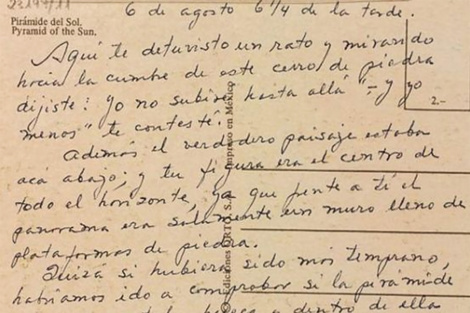 Pirámide del Sol.
Pyramid of the Sun.
6 de agosto 6 1/4 de la tarde.
Aquí te detuvisto un rato y mirando
hacia la cumbre de este cerro de piedra
dijiste: Yo no subiré hasta allá" - y yo
menos" te contesté.
Además el verdadero paisaje estaba
acá abajo; y tu figura era el centro de
todo el horizonte, ya que frente a tí el
panorama era solamente un muro lleno de
plataformas de piedra.
Quizá si hubiera sido más temprano,
habríamos ido a comprobar si la pirámide
a dentro de ella
2.-
Impreso en México